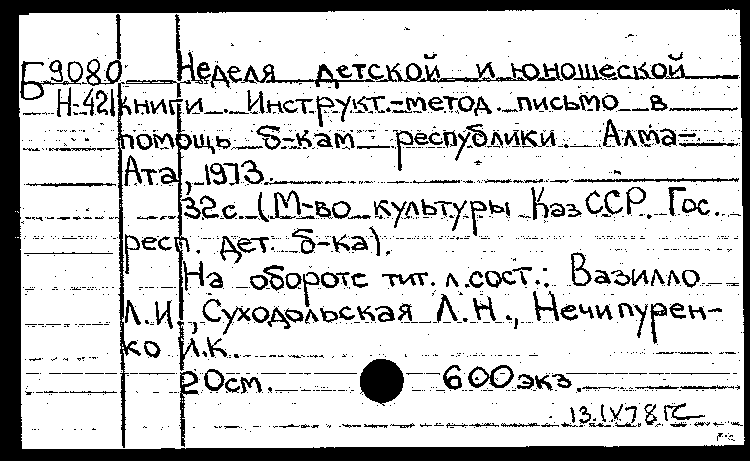 Б9080 Неделя детской и юношеской
Н-421 книги. Инструкт.-метод. письмо в
помощь б-кам республики. Алма-
Ата, 1973.
32с. (М-во культуры КазССР. Гос.
респ. дет. б-ка).
На обороте тит. л. сост.: Вазилло
Л.И., Суходольская Л.Н., Нечипурен-
ко И.К.
20см. 600экз.
13.IV78